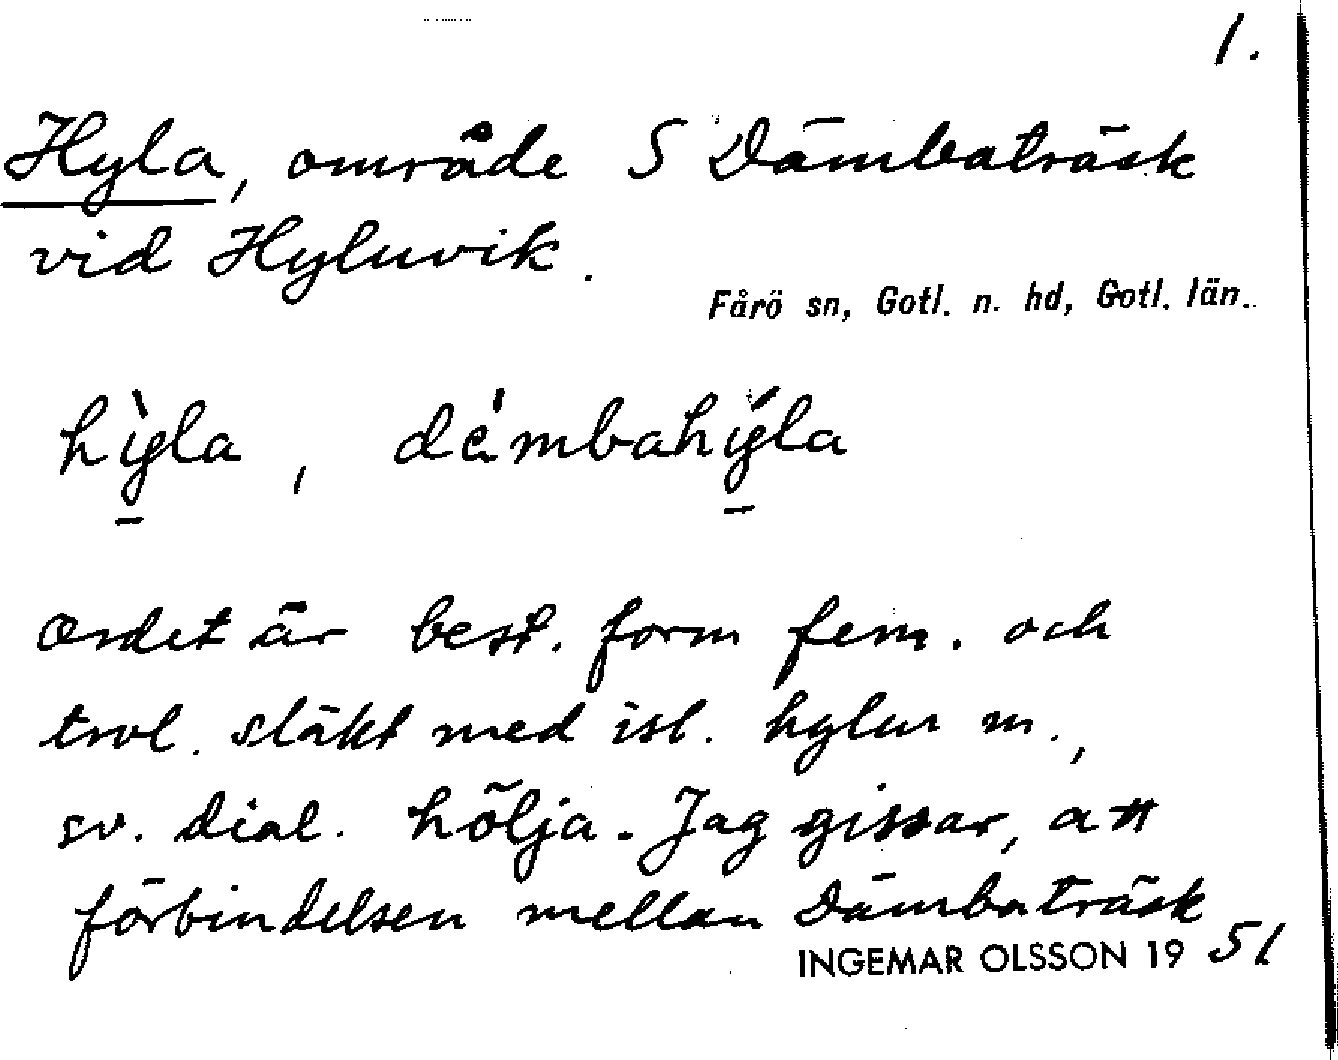 1.
Hyla, område S Dämbaträsk
vid Hyluvik.
Fårö sn, Gotl. n. hd, Gotl. län.
hỳla, démbahýla
Ordet är best. form fem. och
trol. släkt med isl. hylur m.,
sv. dial. hölja. Jag gissar, att
förbindelsen mellan Dämbaträsk
INGEMAR OLSSON 1951